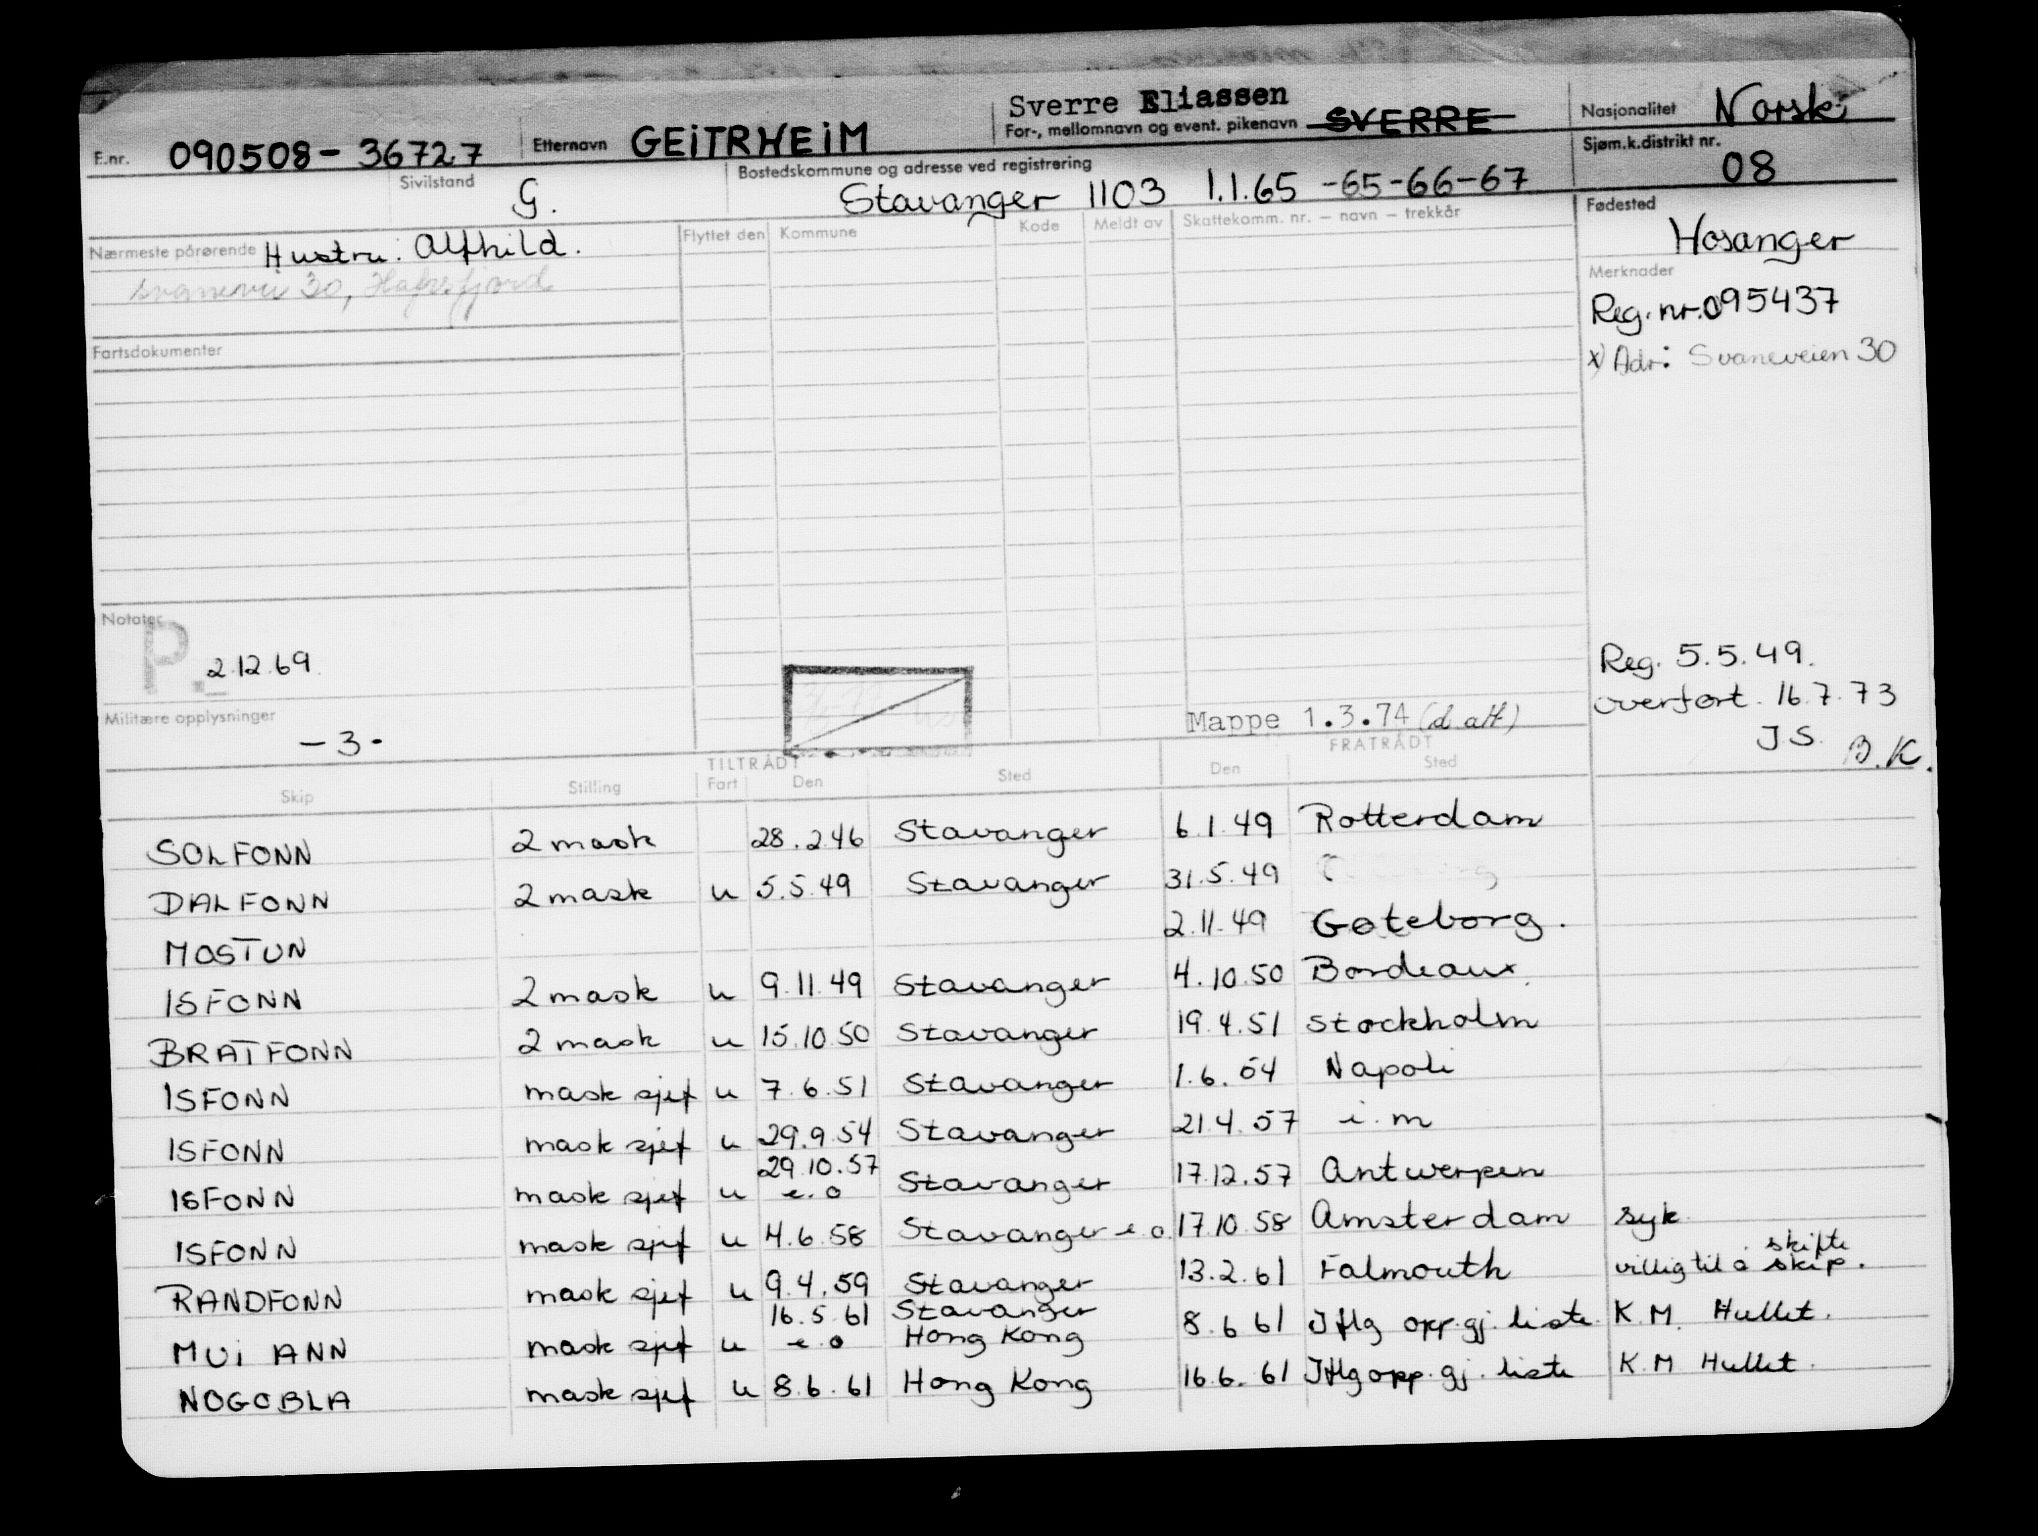 Sverre Eliassen
F.nr. 090508-36727 Etternavn GEiTRHEiM For-, mellomnavn og event. pikenavn SVERRE Nasjonalitet Norsk
Sivilstand G. Bostedskommune og adresse ved registrering Stavanger 1103 1.1.65 -65-66-67 Sjøm.k.distrikt nr. 08
Nærmeste pårørende Hustru: Alfhild. Flyttet den Kommune Kode Meldt av Skattekomm. nr. – navn – trekkår Fødested Hosanger
30, Hafrsfjord
Merknader
Reg.nr.095437
Fartsdokumenter
x) Adr: Svaneveien 30
Notater
P. 2.12.69.
Reg. 5.5.49.
Militære opplysninger
-3-
Mappe 1.3.74 (d alf)
overført. 16.7.73
JS. B.K.
TILTRÅDT FRATRÅDT
Skip Stilling Fart Den Sted Den Sted
SOLFONN 2 mask 28.2.46 Stavanger 6.1.49 Rotterdam
DALFONN 2 mask u 5.5.49 Stavanger 31.5.49
MOSTUN 2.11.49 Gøteborg.
ISFONN 2 mask u 9.11.49 Stavanger 4.10.50 Bordeaux.
BRATFONN 2 mask u 15.10.50 Stavanger 19.4.51 Stockholm
ISFONN mask sjef u 7.6.51 Stavanger 1.6.54 Napoli
ISFONN mask sjef u 29.9.54 Stavanger 21.4.57 i.m
29.10.57
ISFONN mask sjef u e.o Stavanger 17.12.57 Antwerpen
ISFONN mask sjef u 4.6.58 Stavanger e.o. 17.10.58 Amsterdam syk.
RANDFONN mask sjef u 9.4.59 Stavanger 13.2.61 Falmouth villig til å skifte skip.
16.5.61 Stavanger
MUi ANN mask sjef u e.o Hong Kong 8.6.61 Iflg opp.gj. liste K.M. Hullet.
NOGOBLA mask sjef u 8.6.61 Hong Kong 16.6.61 Iflg opp.gj. liste K.M Hullet.